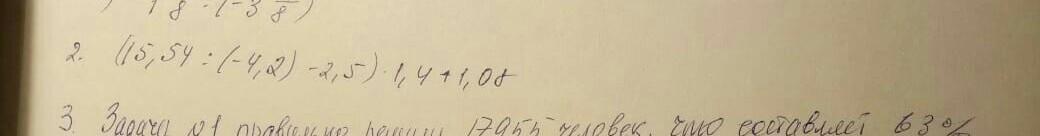 ) 1 8 · (-3 /8)
2. (15,54 : (-4,2) - 2,5) · 1,4 + 1,08
3. Задача №1 правильно решили 17955 человек, что составляет 63%